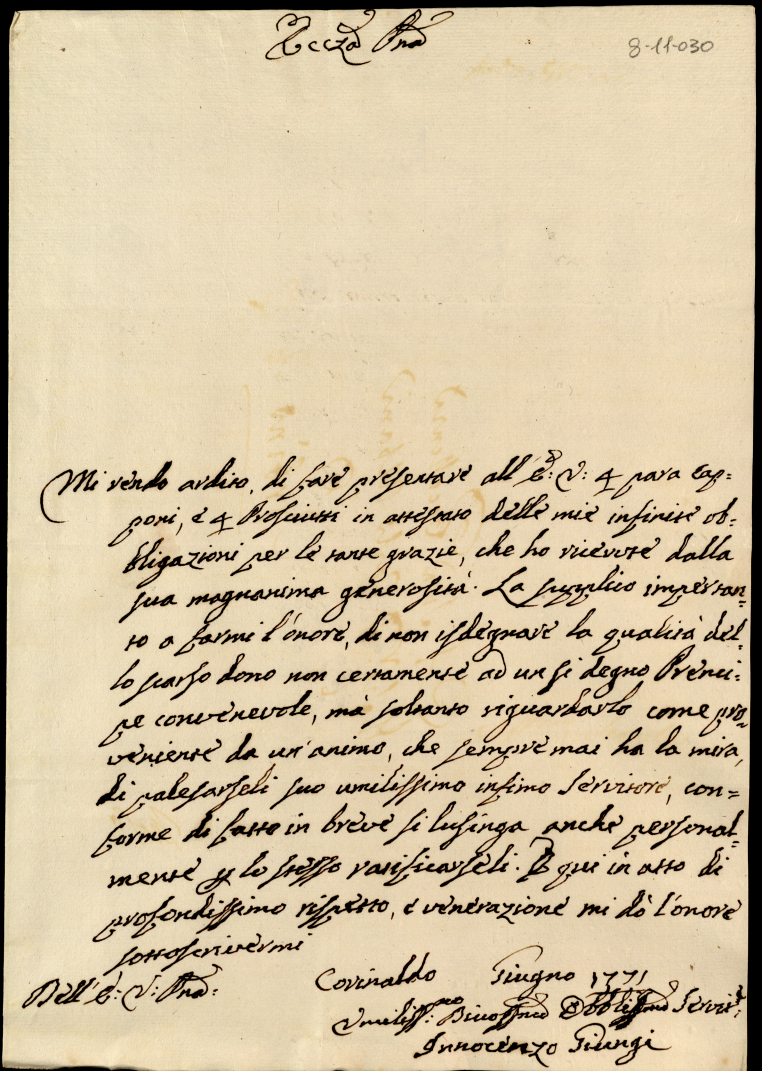 Eccza Pna
8-11-030
Mi rendo ardito, di fare presentare all'E: V: 4 para Cap=
poni, e 4 Prosciutti in attestato delle mie infinite ob=
bligazioni per le tante grazie, che ho ricevute dalla
sua magnanima generosità. La supplico impertan=
to a farmi l'onore, di non isdegnare la qualità del=
lo scarso dono non certamente ad un si degno Prenci=
pe convenevole, mà soltanto riguardarlo come pro=
veniente da un'animo, che sempre mai ha la mira,
di palesarseli suo umilissimo infimo Servitore, con=
forme di fatto in breve si lusinga anche personal=
mente p lo stesso ratificarseli. E qui in atto di
profondissimo rispetto, e venerazione mi dò l'onore
sottoscrivermi
Dell'E: V: Pna:
Corinaldo Giugno 1771
Umiliss:mo Divossmo Obbligmo Servit:e
Innocenzo Giungi